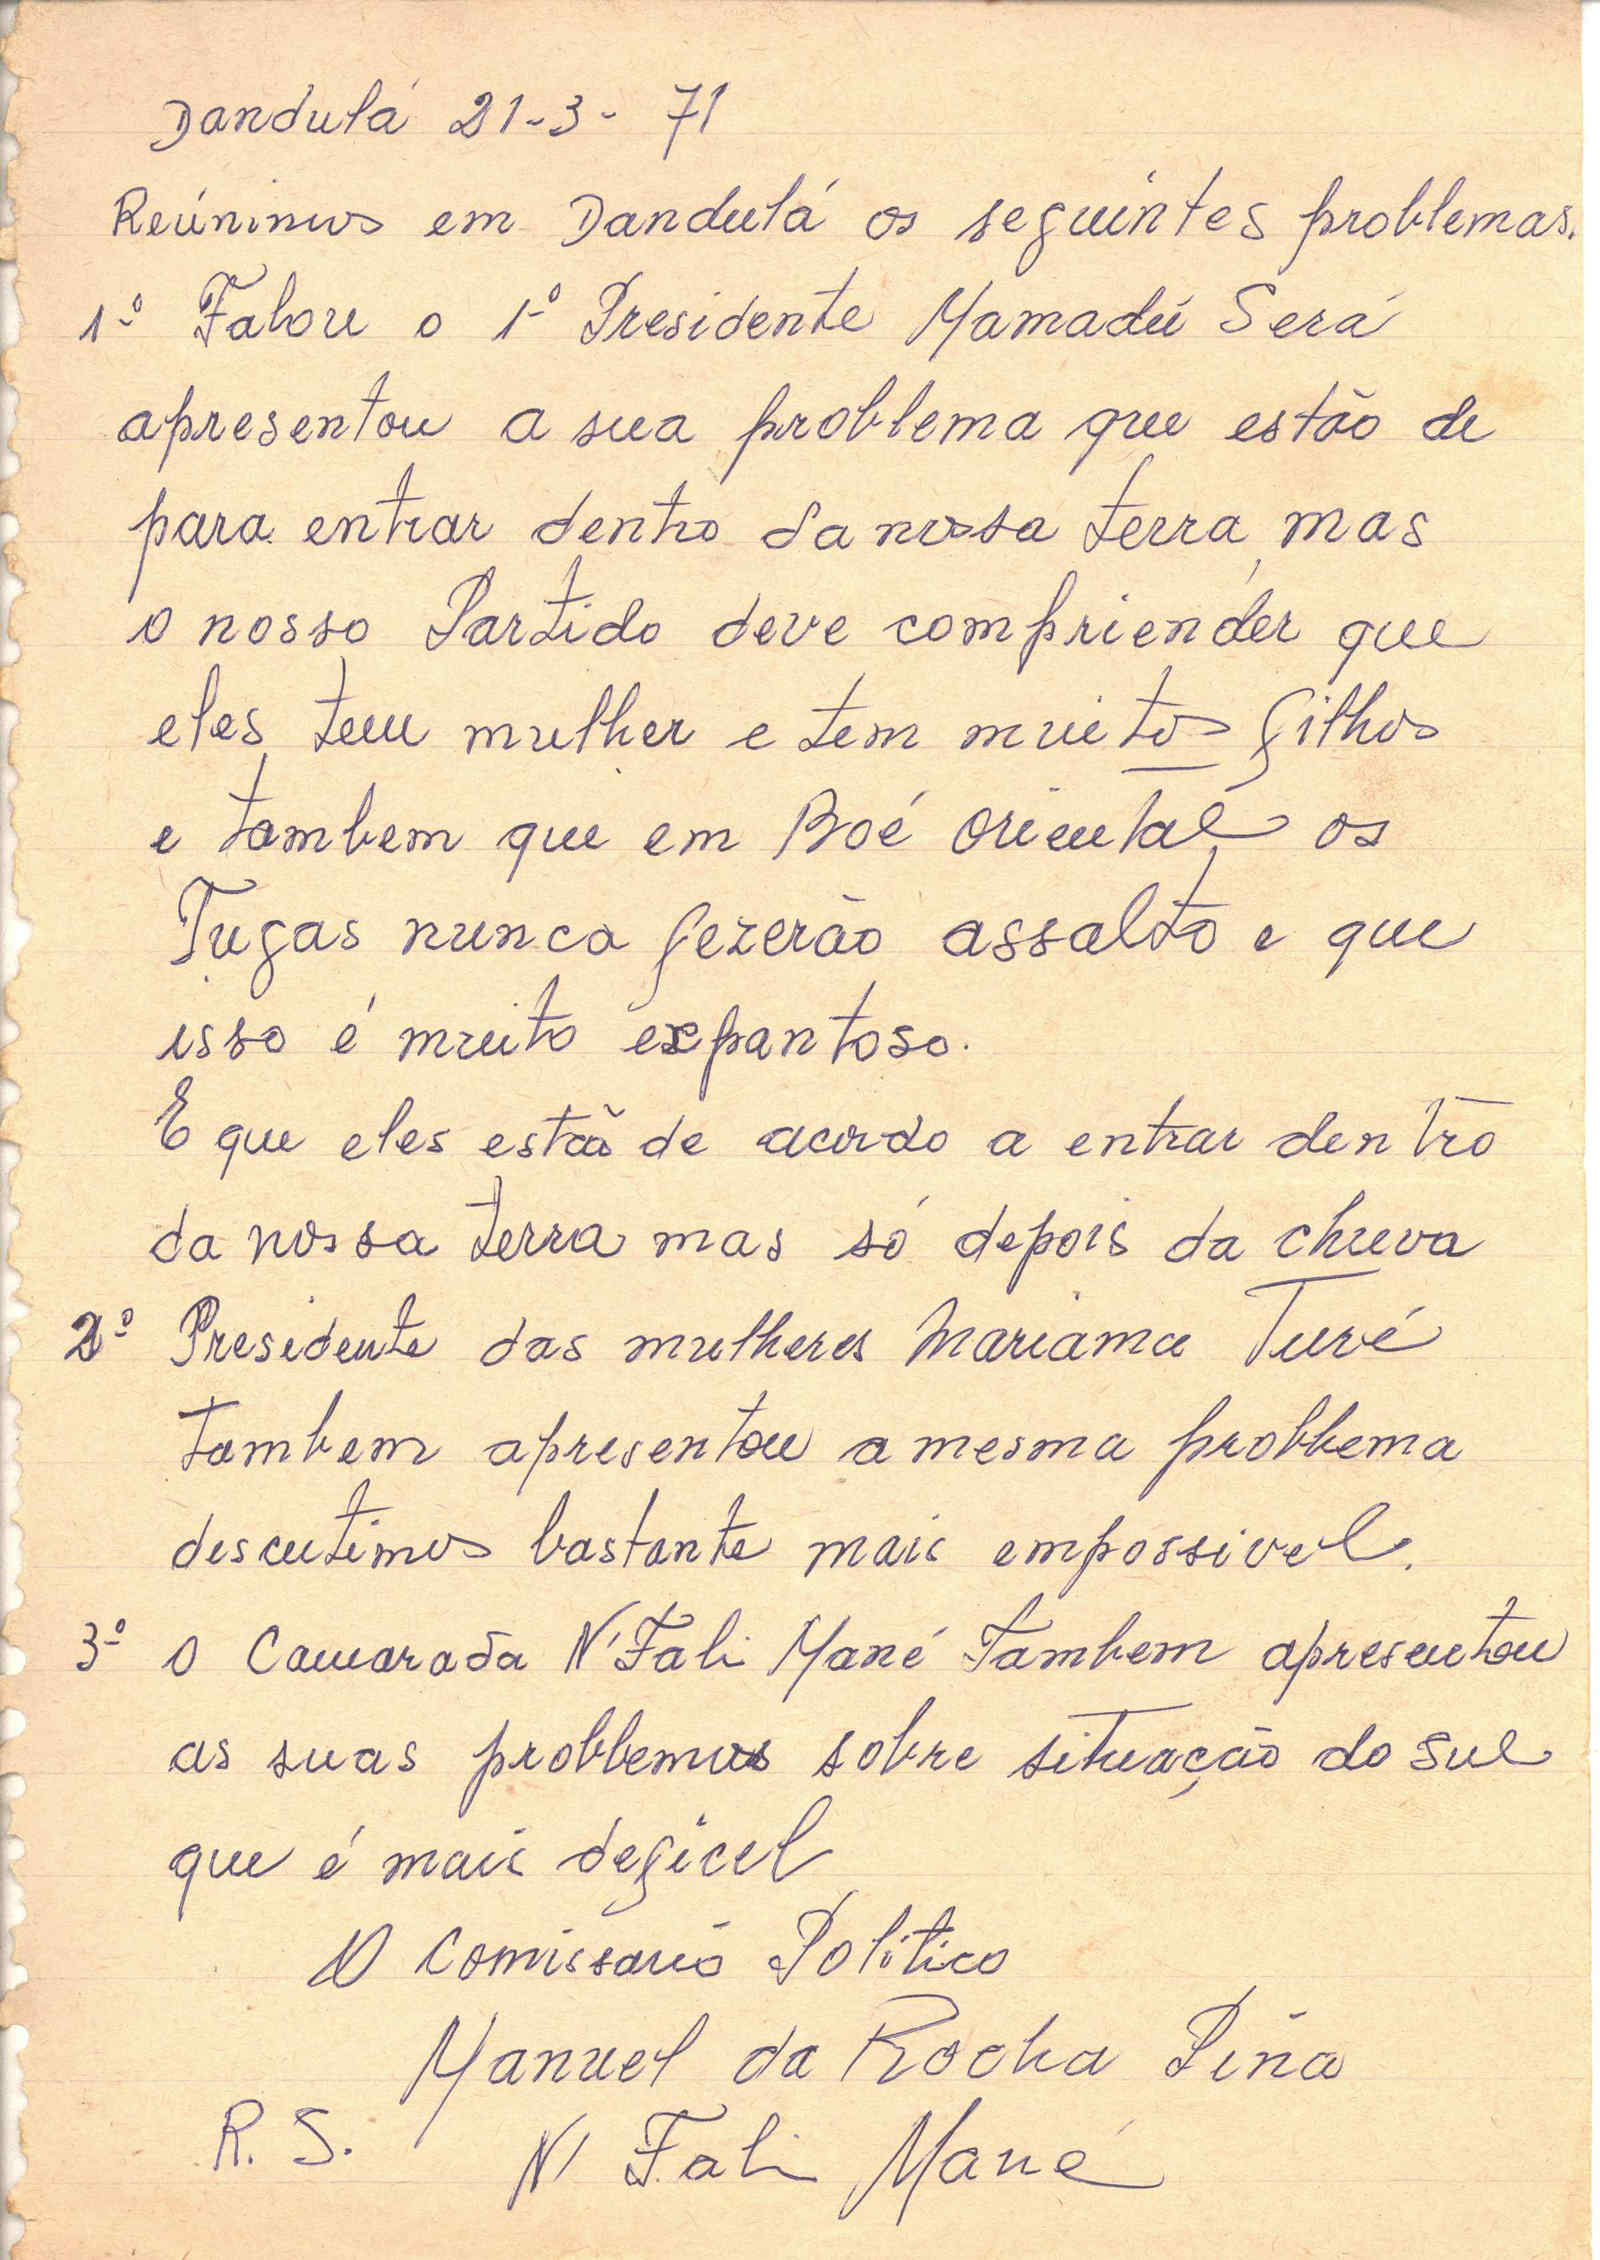 Dandulá 21-3-71
Reúnimos em Dandulá os seguintes problemas.
1º Falou o 1º Presidente Mamadú Será
apresentou a sua problema que estão de
para entrar dentro da nossa terra, mas
o nosso Partido deve compriender que
eles tem mulher e tem muitos filhos
e tambem que em Boé oriental os
Tugas nunca fezerão assalto e que
isso é muito expantoso.
E que eles estão de acordo a entrar dentro
da nossa terra mas só depois da chuva
2º Presidente das mulheres Mariama Turé
tambem apresentou a mesma problema
descutimos bastante mais empossivel.
3º O Camarada N'Fali Mané Tambem apresentou
as suas problemas sobre situação do sul
que é mais deficel
O Comissario Politico
Manuel da Rocha Pina
R. S. N'Fali Mané